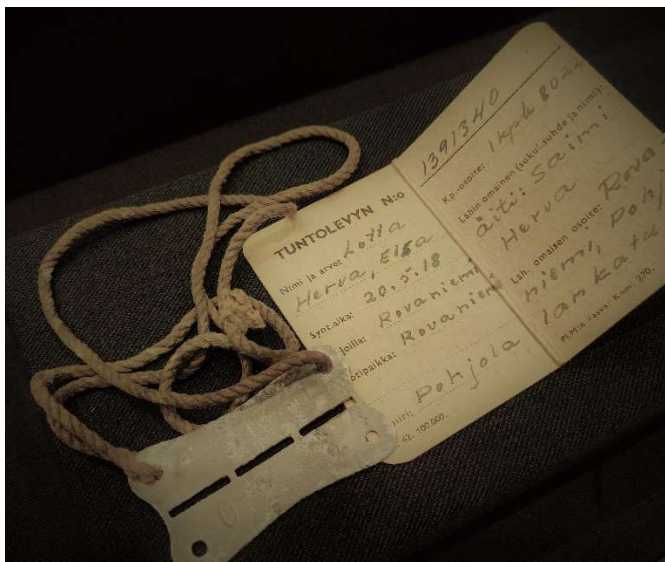 TUNTOLEVYN N:o
Nimi ja arvo: Lotta
Herva, Elsa
Synt.aika: 20.5.18
joilla: Rovaniemi
otipaikka: Rovaniemi
piiri: Pohjola
42. 100.000.
1391340
Kp.-osoite: 1 kpk 8022
Lähin omainen (sukul.suhde ja nimi):
äiti: Saimi
Herva
Läh. omaisen osoite: Rova-
niemi, Poh
lankatu
Pl.M:n vaava. Kom. 270.